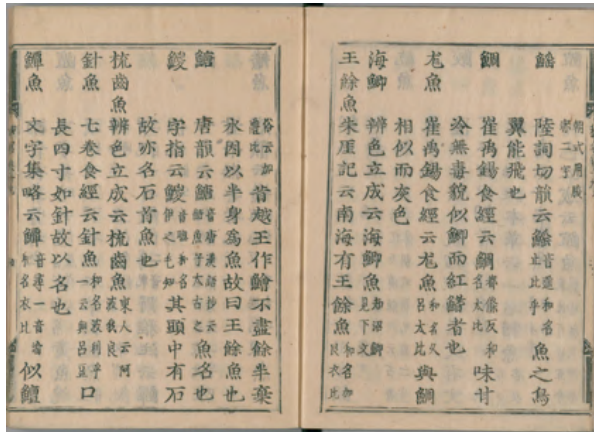 鰩 陸詞切韻云鰩音遥和名止比乎魚之鳥
翼能飛也
鯛 崔禹錫食經云鯛都條反和名太比味甘
冷無毒貌似鯽而紅鰭者也
尨魚 崔禹錫食經云尨魚和名久呂太比與鯛
相似而灰色
海鯽 辨色立成云海鯽魚知沼鯽見下文
王餘魚 朱厓記云南海有王餘魚和名加良衣比
俗云加禮比昔越王作鱠不盡餘半棄
水因以半身爲魚故曰王餘魚也
唐韻云 魚名也
字指云 其頭中有石
故亦名石首魚也
梳齒魚 辨色立成云梳齒魚東人云
針魚 七卷食經云針魚和名波利乎一云與呂豆口
長四寸如針故以名也
鱏魚 文字集略云鱏音尋一音 和名衣比似鱣